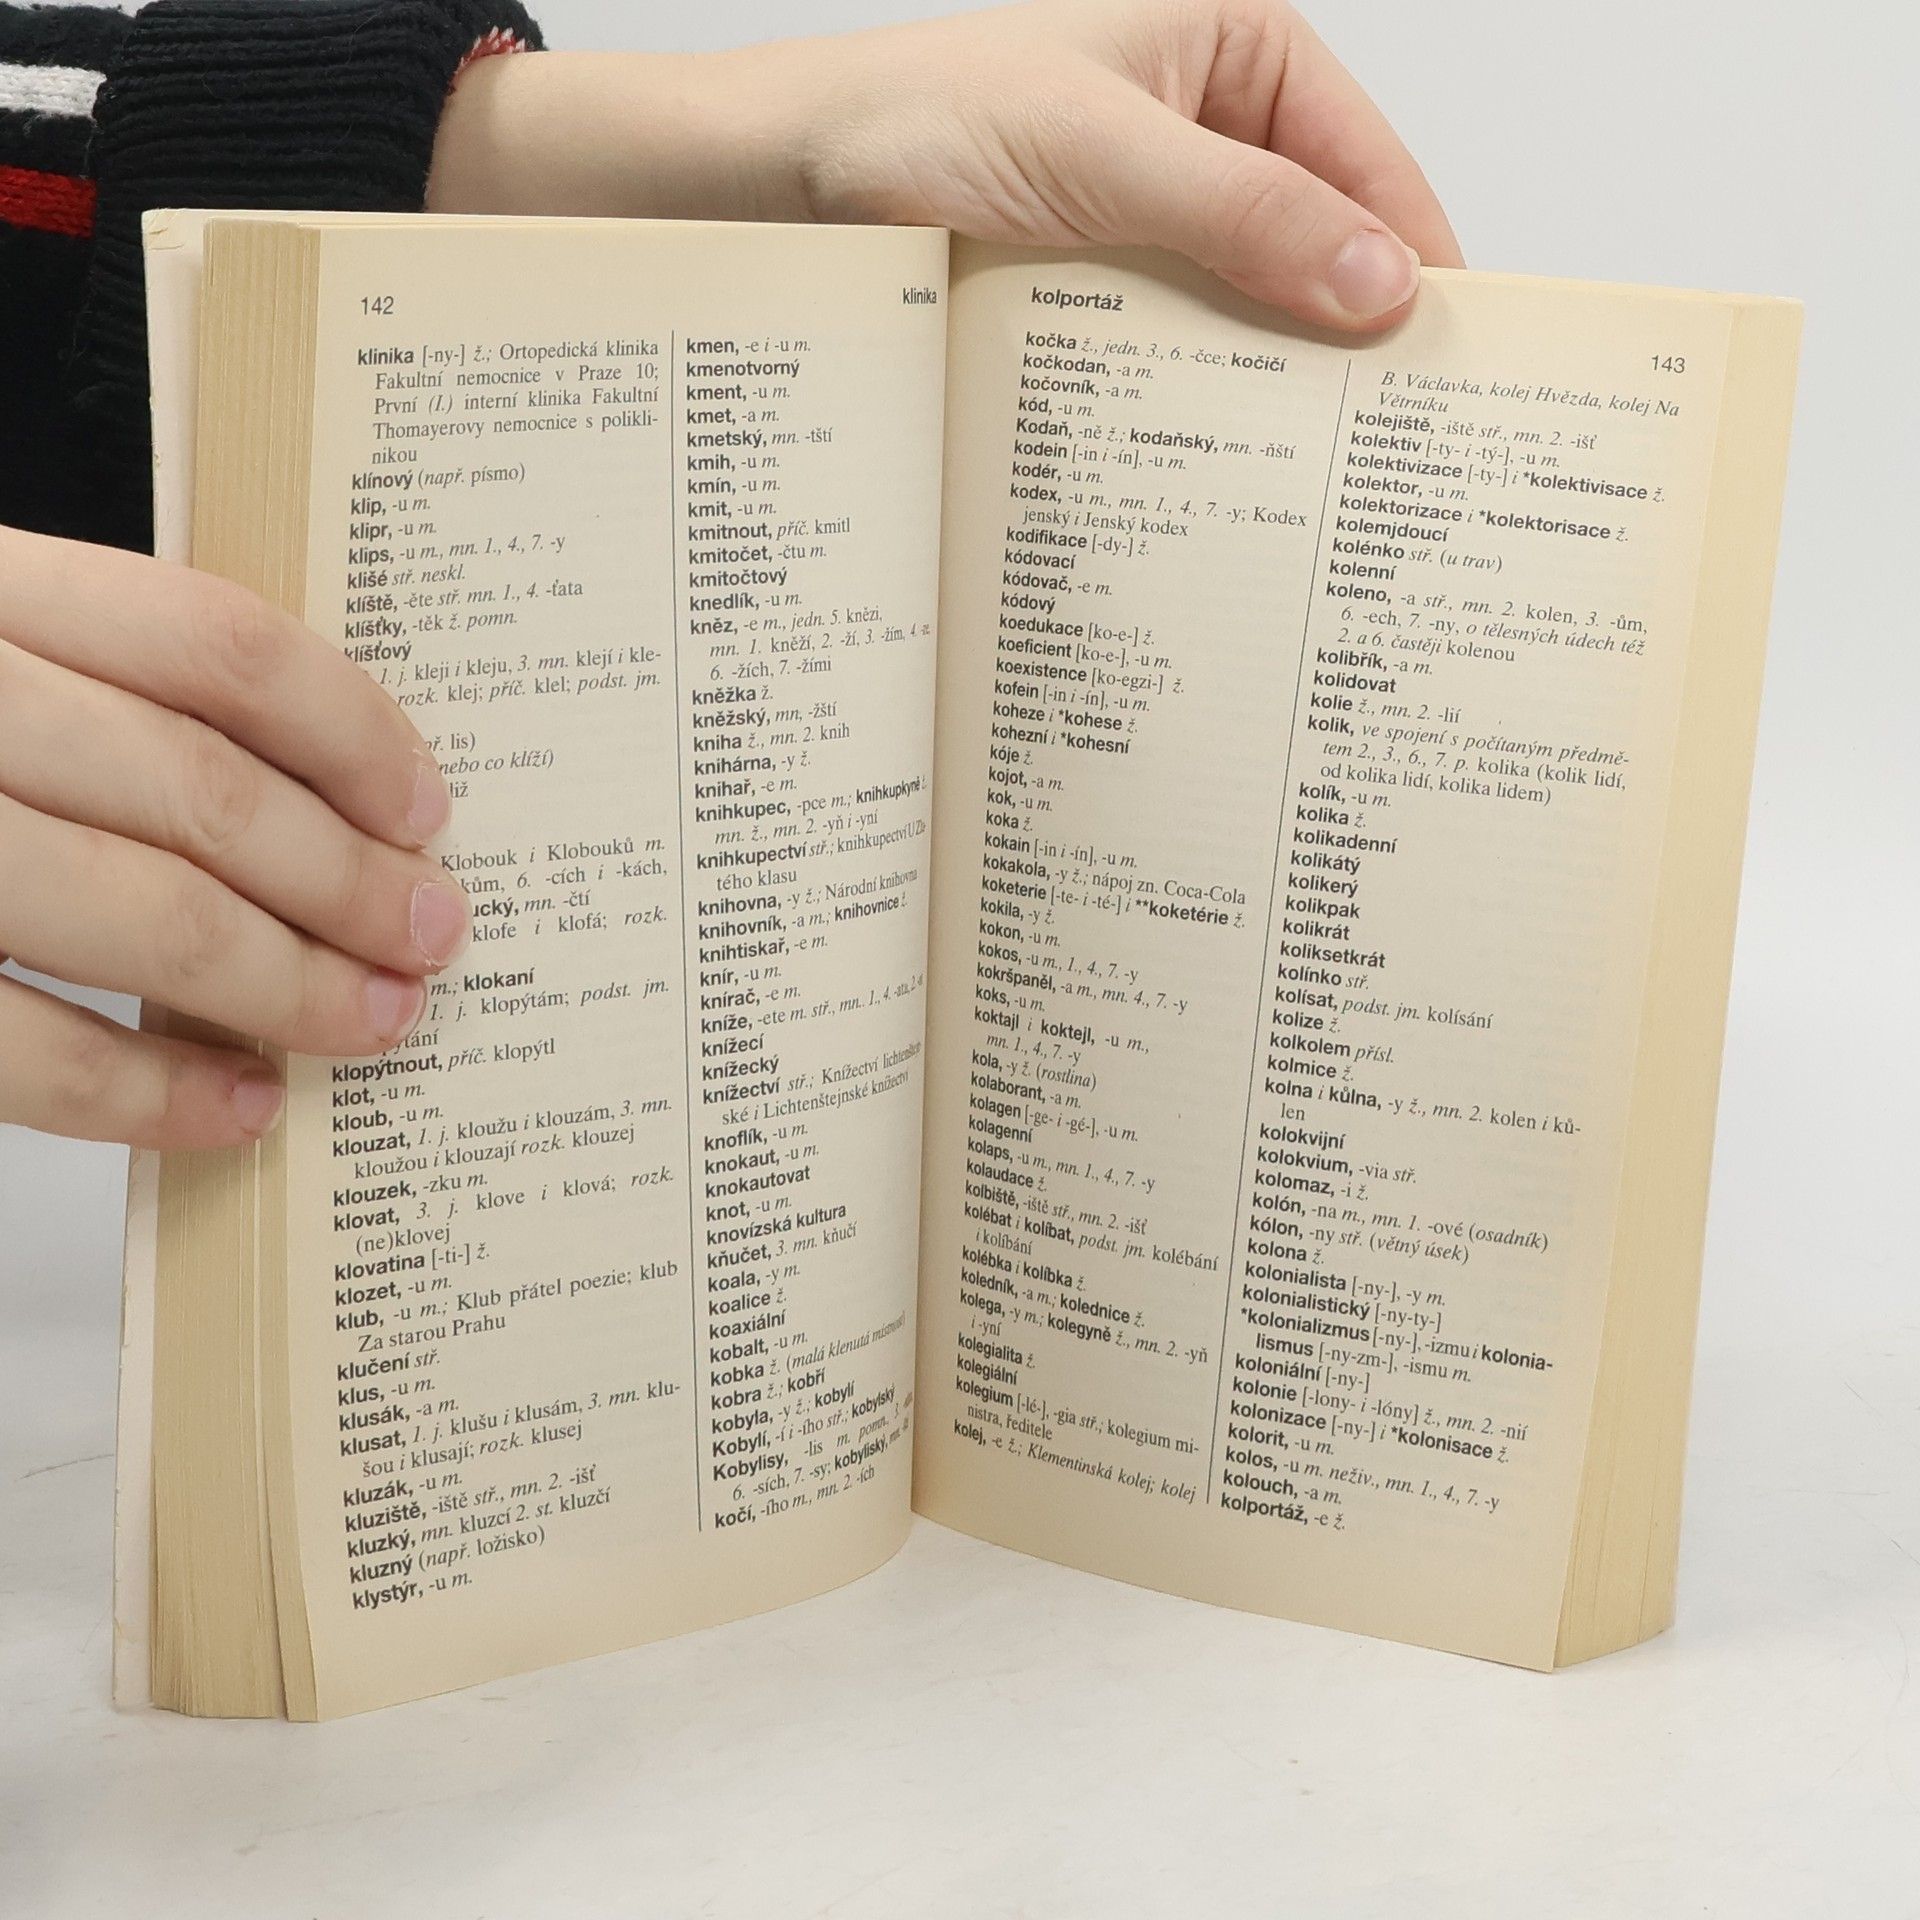 142
klinika
klinika [-ny-] ž.; Ortopedická klinika
Fakultní nemocnice v Praze 10;
První (I.) interní klinika Fakultní
Thomayerovy nemocnice s polikli-
nikou
klínový (např. písmo)
klip, -u m.
klipr, -u m.
klips, -u m., mn. 1., 4., 7. -y
klišé stř. neskl.
klíště, -ěte stř. mn. 1., 4. -ťata
klíšťky, -těk ž. pomn.
klíšťový
1. j. kleji i kleju, 3. mn. klejí i kle-
rozk. klej; příč. klel; podst. jm.
lis)
nebo co klíží)
Klobouk i Klobouků m.
-kům, 6. -cích i -kách,
mn. -čtí
klofe i klofá; rozk.
m.; klokaní
1. j. klopýtám; podst. jm.
klopýtnout, příč. klopýtl
klot, -u m.
kloub, -u m.
klouzat, 1. j. kloužu i klouzám, 3. mn.
kloužou i klouzají rozk. klouzej
klouzek, -zku m.
klovat, 3. j. klove i klová; rozk.
(ne)klovej
klovatina [-ti-] ž.
klozet, -u m.
klub, -u m.; Klub přátel poezie; klub
Za starou Prahu
klučení stř.
klus, -u m.
klusák, -a m.
klusat, 1. j. klušu i klusám, 3. mn. klu-
šou i klusají; rozk. klusej
kluzák, -u m.
kluziště, -iště stř., mn. 2. -išť
kluzký, mn. kluzcí 2. st. kluzčí
kluzný (např. ložisko)
klystýr, -u m.
kmen, -e i -u m.
kmenotvorný
kment, -u m.
kmet, -a m.
kmetský, mn. -tští
kmih, -u m.
kmín, -u m.
kmit, -u m.
kmitnout, příč. kmitl
kmitočet, -čtu m.
kmitočtový
knedlík, -u m.
kněz, -e m., jedn. 5. knězi,
mn. 1. kněží, 2. -ží, 3. -žím, 4. -ze,
6. -žích, 7. -žími
kněžka ž.
kněžský, mn, -žští
kniha ž., mn. 2. knih
knihárna, -y ž.
knihař, -e m.
knihkupec, -pce m.; knihkupkyně ž.
mn. ž., mn. 2. -yň i -yní
knihkupectví stř.; knihkupectví U Zla-
tého klasu
knihovna, -y ž.; Národní knihovna
knihovník, -a m.; knihovnice ž.
knihtiskař, -e m.
knír, -u m.
knírač, -e m.
kníže, -ete m. stř., mn.. 1., 4. -ata, 2.
knížecí
knížecký
knížectví stř.; Knížectví lichtenštejn-
ské i Lichtenštejnské knížectví
knoflík, -u m.
knokaut, -u m.
knokautovat
knot, -u m.
knovízská kultura
kňučet, 3. mn. kňučí
koala, -y m.
koalice ž.
koaxiální
kobalt, -u m.
kobka ž. (malá klenutá místnost)
kobra ž.; kobří
kobyla, -y ž.; kobylí
Kobylí, -í i -ího stř.; kobylský
Kobylisy, -lis m. pomn., 3.
6. -sích, 7. -sy; kobyliský, mn.
kočí, -ího m., mn. 2. -ích
kolportáž
143
kočka ž., jedn. 3., 6. -čce; kočičí
kočkodan, -a m.
kočovník, -a m.
kód, -u m.
Kodaň, -ně ž.; kodaňský, mn. -ňští
kodein [-in i -ín], -u m.
kodér, -u m.
kodex, -u m., mn. 1., 4., 7. -y; Kodex
jenský i Jenský kodex
kodifikace [-dy-] ž.
kódovací
kódovač, -e m.
kódový
koedukace [ko-e-] ž.
koeficient [ko-e-], -u m.
koexistence [ko-egzi-] ž.
kofein [-in i -ín], -u m.
koheze i *kohese ž.
kohezní i *kohesní
kóje ž.
kojot, -a m.
kok, -u m.
koka ž.
kokain [-in i -ín], -u m.
kokakola, -y ž.; nápoj zn. Coca-Cola
koketerie [-te- i -té-] i **koketérie ž.
kokila, -y ž.
kokon, -u m.
kokos, -u m., 1., 4., 7. -y
kokršpaněl, -a m., mn. 4., 7. -y
koks, -u m.
koktajl i koktejl, -u m.,
mn. 1., 4., 7. -y
kola, -y ž. (rostlina)
kolaborant, -a m.
kolagen [-ge- i -gé-], -u m.
kolagenní
kolaps, -u m., mn. 1., 4., 7. -y
kolaudace ž.
kolbiště, -iště stř., mn. 2. -išť
kolébat i kolíbat, podst. jm. kolébání
i kolíbání
kolébka i kolíbka ž.
koledník, -a m.; kolednice ž.
kolega, -y m.; kolegyně ž., mn. 2. -yň
i -yní
kolegialita ž.
kolegiální
kolegium [-lé-], -gia stř.; kolegium mi-
nistra, ředitele
kolej, -e ž.; Klementinská kolej; kolej
B. Václavka, kolej Hvězda, kolej Na
Větrníku
kolejiště, -iště stř., mn. 2. -išť
kolektiv [-ty- i -tý-], -u m.
kolektivizace [-ty-] i *kolektivisace ž.
kolektor, -u m.
kolektorizace i *kolektorisace ž.
kolemjdoucí
kolénko stř. (u trav)
kolenní
koleno, -a stř., mn. 2. kolen, 3. -ům,
6. -ech, 7. -ny, o tělesných údech též
2. a 6. častěji kolenou
kolibřík, -a m.
kolidovat
kolie ž., mn. 2. -lií
kolik, ve spojení s počítaným předmě-
tem 2., 3., 6., 7. p. kolika (kolik lidí,
od kolika lidí, kolika lidem)
kolík, -u m.
kolika ž.
kolikadenní
kolikátý
kolikerý
kolikpak
kolikrát
koliksetkrát
kolínko stř.
kolísat, podst. jm. kolísání
kolize ž.
kolkolem přísl.
kolmice ž.
kolna i kůlna, -y ž., mn. 2. kolen i ků-
len
kolokvijní
kolokvium, -via stř.
kolomaz, -i ž.
kolón, -na m., mn. 1. -ové (osadník)
kólon, -ny stř. (větný úsek)
kolona ž.
kolonialista [-ny-], -y m.
kolonialistický [-ny-ty-]
*kolonializmus [-ny-], -izmu i kolonia-
lismus [-ny-zm-], -ismu m.
koloniální [-ny-]
kolonie [-lony- i -lóny] ž., mn. 2. -nií
kolonizace [-ny-] i *kolonisace ž.
kolorit, -u m.
kolos, -u m. neživ., mn. 1., 4., 7. -y
kolouch, -a m.
kolportáž, -e ž.